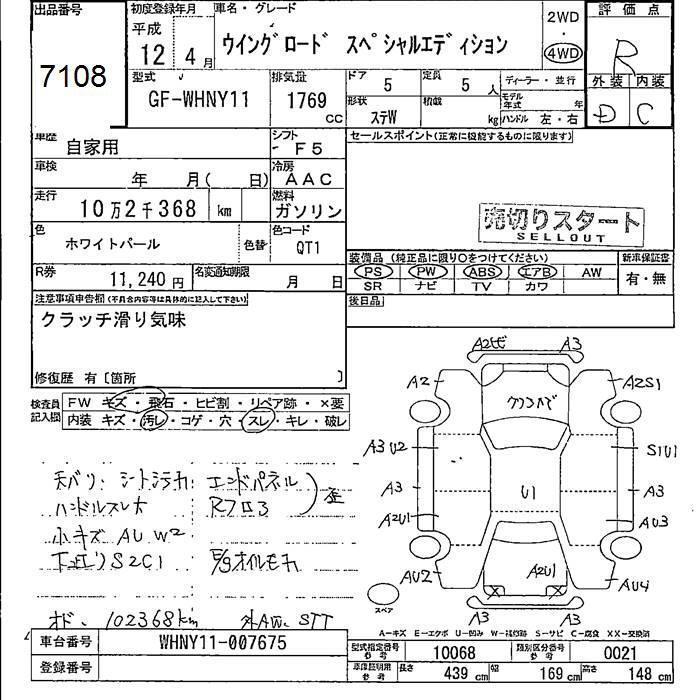 出品番号
7108
初度登録年月
平成
12年4月
車名・グレード
ウイングロード スペシャルエディション
2WD
・
4WD
評価点
R
外装 内装
D C
型式
GF-WHNY11
排気量
1769
CC
ドア
5
定員
5人
形状
ステW
積載
kg
ディーラー・並行
モデル年式 年
ハンドル 左・右
車歴
自家用
シフト
F5
車検
年 月( 日)
冷房
AAC
走行
10万2千368 km
燃料
ガソリン
色
ホワイトパール
色替
色コード
QT1
R券
11,240円
名変通知期限
月 日
セールスポイント(正常に機能するものに限ります)
売切りスタート
SELLOUT
装備品(純正品に限り○をつけてください)
PS PW ABS エアB AW
SR ナビ TV カワ
新車保証書
有・無
後日品
注意事項申告欄(不具合内容等は具体的に記入して下さい)
クラッチ滑り気味
修復歴 有〔箇所 〕
検査員記入欄
FW キズ・飛石・ヒビ割・リペア跡・×要
内装 キズ・汚レ・コゲ・穴・スレ・キレ・破レ
ハンドルスレ大
エンドパネル
小キズ AU W2
S2C1
オド、102368km
外AW、STT
A3
A2
A2S1
A3U2
S1U1
A3
U1
A3
A2U1
AU3
AU2
A2U1
AU4
スペア
A3
A3
A-キズ E-エクボ U-凹み W-補修跡 S-サビ C-腐食 XX-交換済
車台番号
WHNY11-007675
登録番号
型式指定番号 参考
10068
類別区分番号 参考
0021
車庫証明用 参考
長さ 439 cm
幅 169 cm
高さ 148 cm